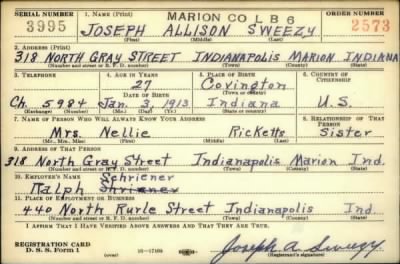 SERIAL NUMBER 1. NAME (Print) MARION CO LB 6 ORDER NUMBER
3995 JOSEPH ALLISON SWEEZY 2573
(First) (Middle) (Last)
2. ADDRESS (Print)
318 NORTH GRAY STREET INDIANAPOLIS MARION INDIANA
(Number and street or R. F. D. number) (Town) (County) (State)
3. TELEPHONE 4. AGE IN YEARS 5. PLACE OF BIRTH 6. COUNTRY OF CITIZENSHIP
27 Covington
DATE OF BIRTH
Ch. 5984 Jan. 3, 1913 Indiana U.S.
(Exchange) (Number) (Mo.) (Day) (Yr.) (State or country)
7. NAME OF PERSON WHO WILL ALWAYS KNOW YOUR ADDRESS 8. RELATIONSHIP OF THAT PERSON
Mrs. Nellie Ricketts Sister
(Mr., Mrs., Miss) (First) (Middle) (Last)
9. ADDRESS OF THAT PERSON
318 North Gray Street Indianapolis Marion Ind.
(Number and street or R. F. D. number) (Town) (County) (State)
10. EMPLOYER'S NAME Schriener
Ralph Shriener
11. PLACE OF EMPLOYMENT OR BUSINESS
440 North Rurle Street Indianapolis Ind.
(Number and street or R. F. D. number) (Town) (County) (State)
I AFFIRM THAT I HAVE VERIFIED ABOVE ANSWERS AND THAT THEY ARE TRUE.
REGISTRATION CARD
D. S. S. Form 1 (over) Joseph A. Sweezy
(Registrant's signature)